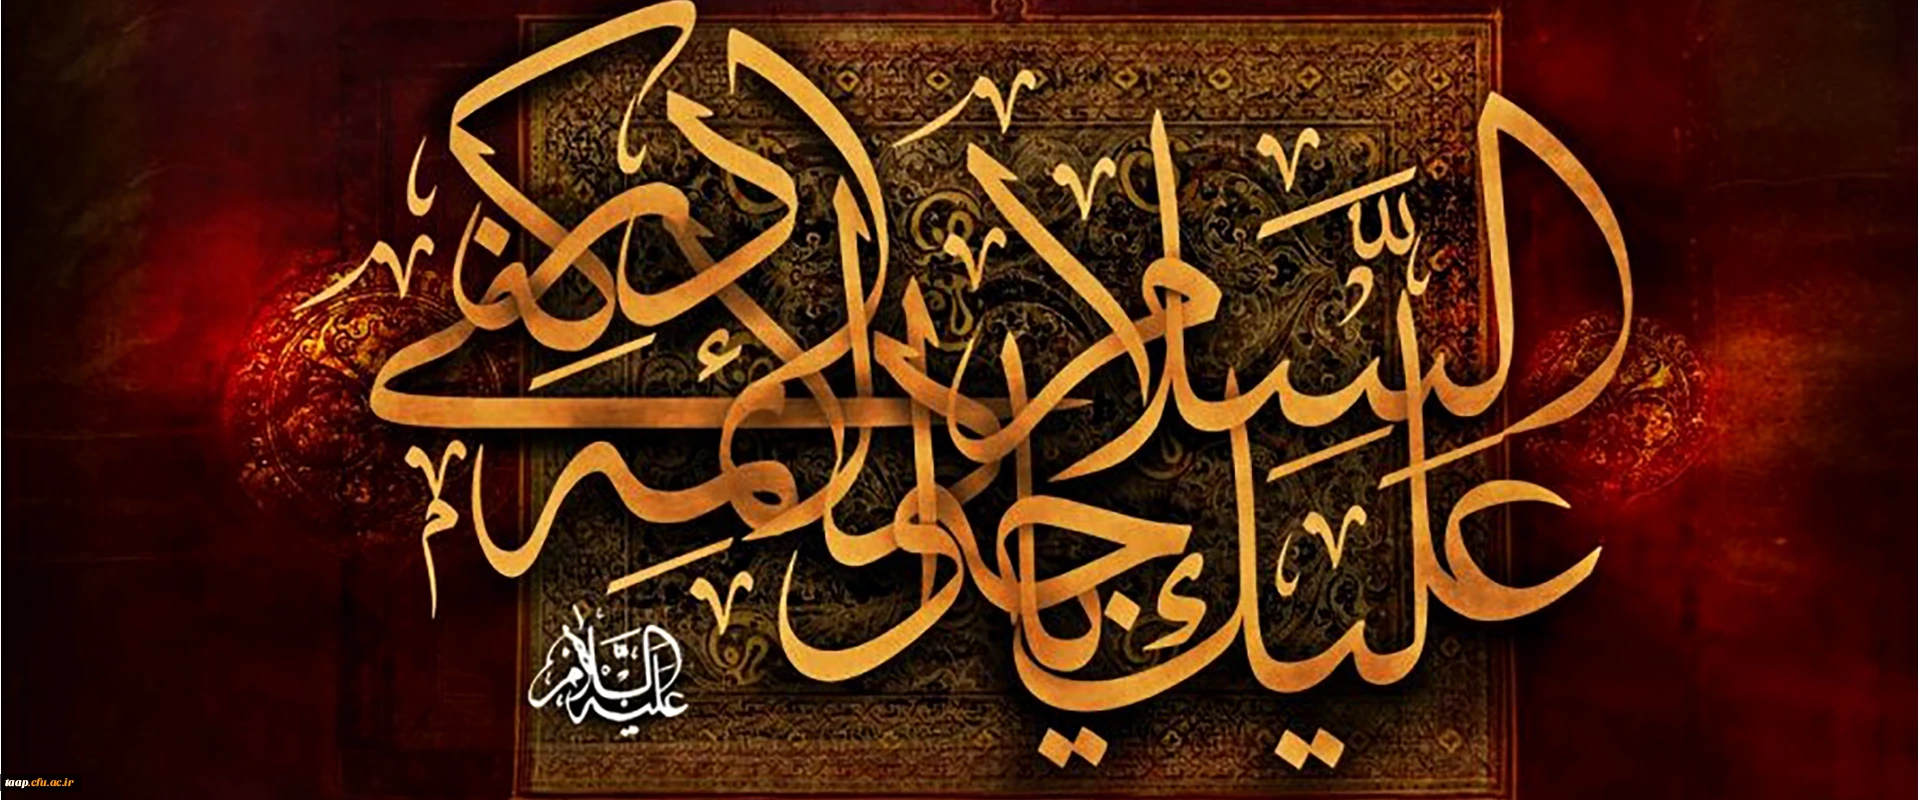 السلام
علیک یا جواد الائمه ادرکنی
علیه السلام
taap.cfu.ac.ir